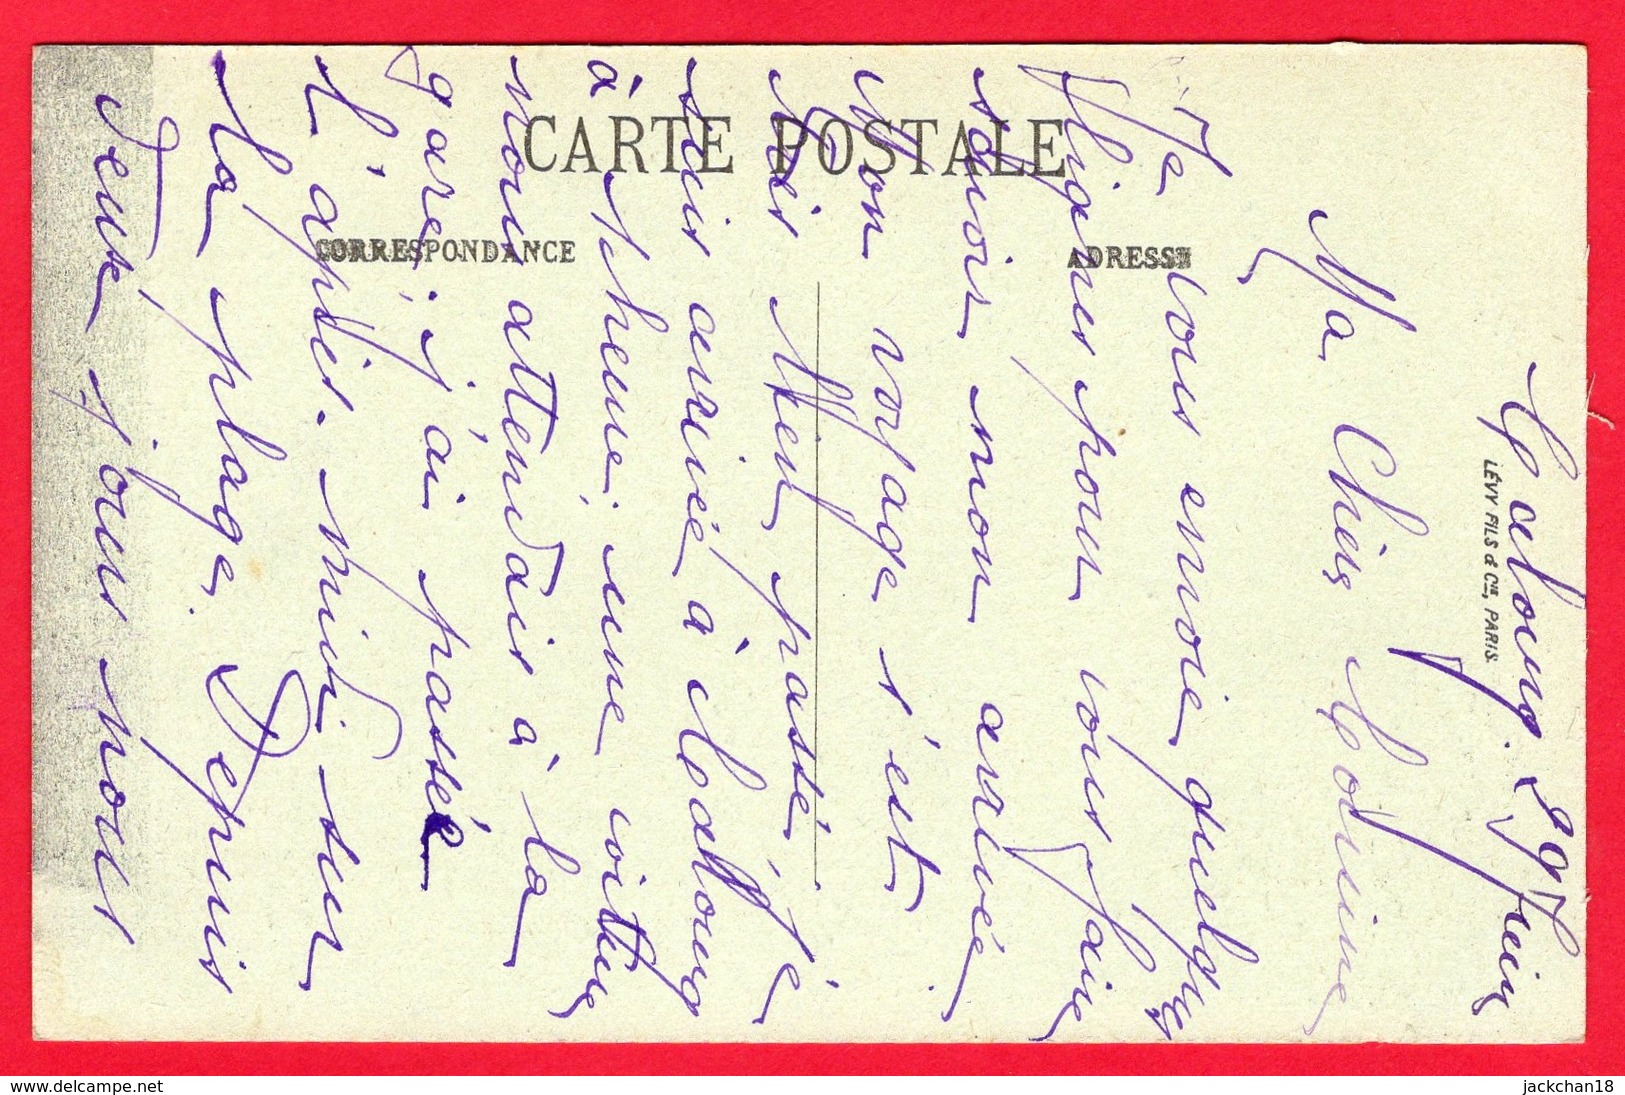 Cabourg. 29 Juin
Ma Chère Cousine
Je vous envoie quelques
lignes pour vous faire
savoir mon arrivée
Mon voyage s'est
très bien passé, je
suis arrivé à Cabourg
à heure. une voiture
nous attendais à la
gare, j'ai passée
l'après-midi sur
la plage. Depuis
deux jours nous
CARTE POSTALE
CORRESPONDANCE
ADRESSE
LÉVY FILS & Cie, PARIS.
www.delcampe.net
jackchan18